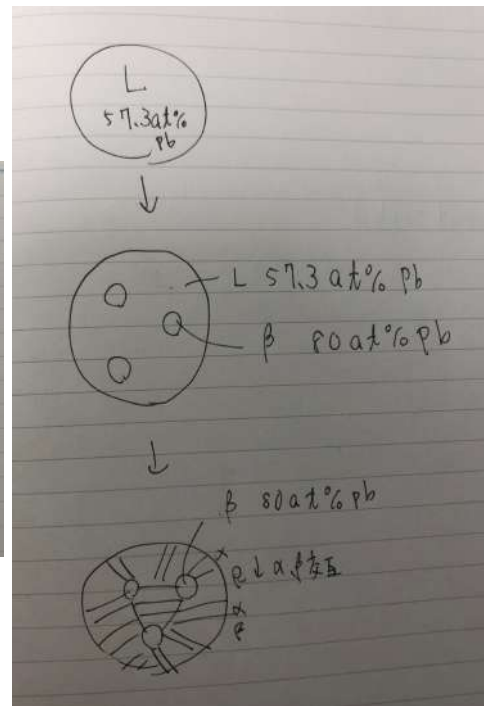 L
57.3at%
pb
L 57.3 at% pb
β 80at%pb
β 80at%pb
α
β ↓ α,β交互
α
β